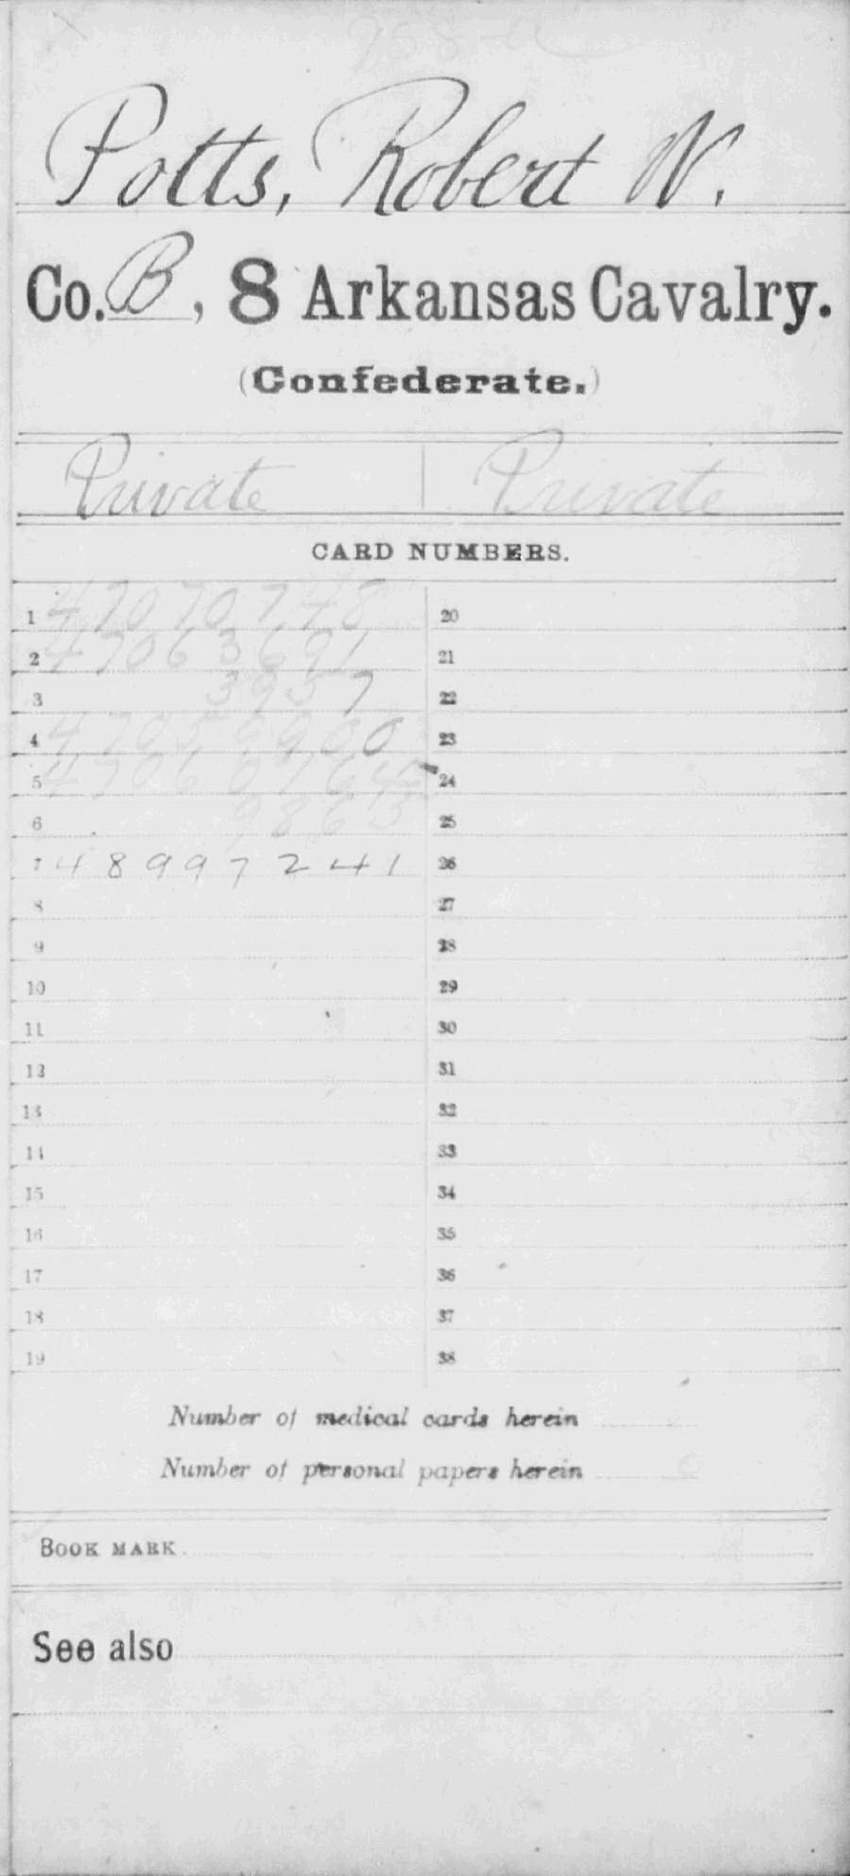 Potts, Robert W.
Co. B, 8 Arkansas Cavalry.
(Confederate.)
Private | Private
CARD NUMBERS.
1 47070748 20
2 47063691 21
3 3957 22
4 23
5 24
6 9863 25
7 48997241 26
8 27
9 28
10 29
11 30
12 31
13 32
14 33
15 34
16 35
17 36
18 37
19 38
Number of medical cards herein
Number of personal papers herein 0
BOOK MARK
See also